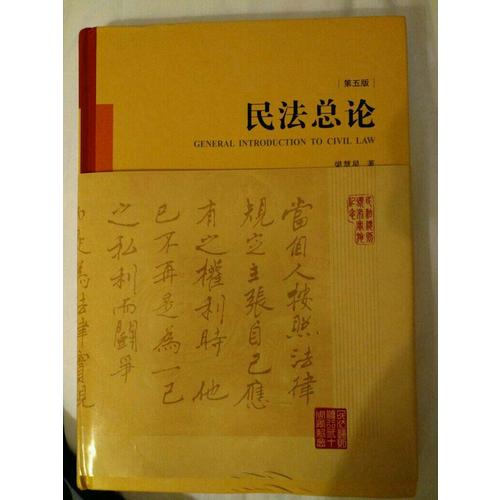 第五版
民法总论
GENERAL INTRODUCTION TO CIVIL LAW
梁慧星 著
當個人按照法律
規定主張自己應
有之權利時他
已不再是為一己
之私利而鬭爭
而是為法律實現